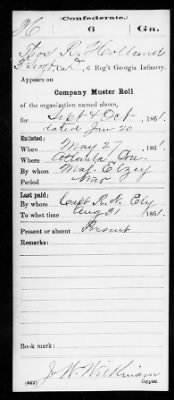 (Confederate.)
H 6 Ga.
Thos R. Holland
Co. D, 6 Reg't Georgia Infantry.
Appears on
Company Muster Roll
of the organization named above,
for Sept & Oct, 1861.
dated Jan 20
Enlisted:
When May 27, 1861.
Where
By whom Maj. Elzey
Period War
Last paid:
By whom Capt R. N. Ely
To what time Aug 31, 1861.
Present or absent Present
Remarks:
Book mark:
J. W. Wickman
(642) Copyist.